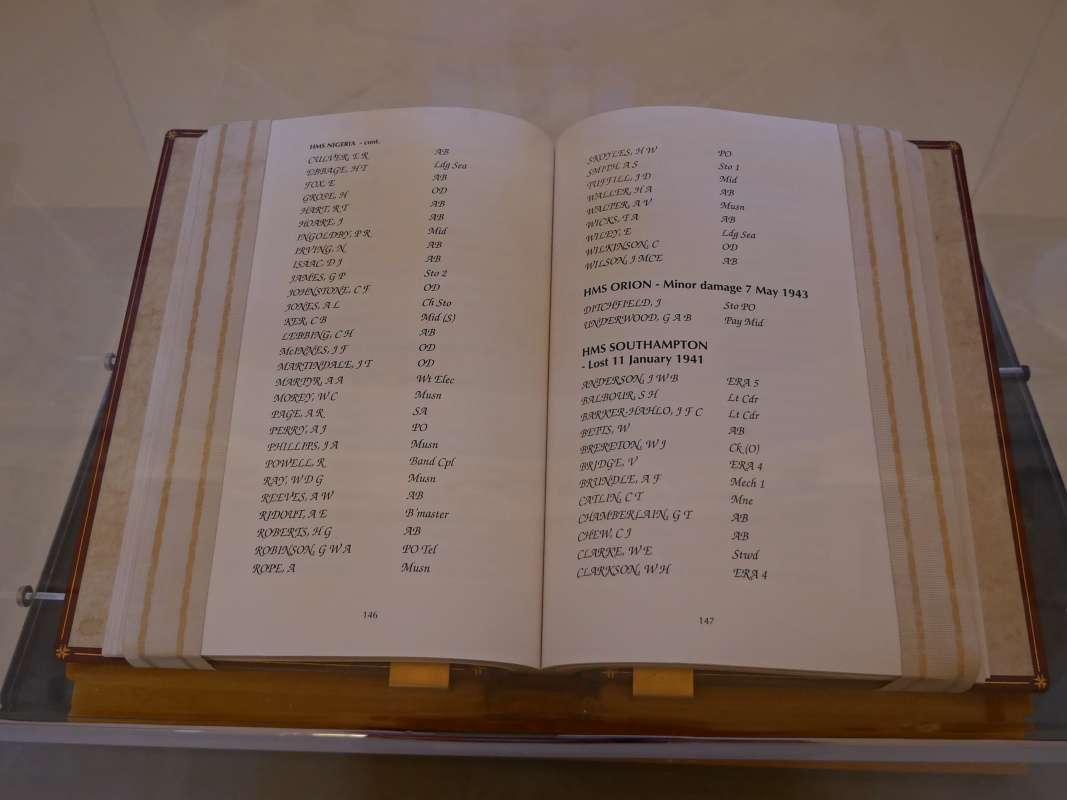 HMS NIGERIA - cont.
CULVER, E R AB
EBBAGE, H T Ldg Sea
FOX, E AB
GROSE, H OD
HART, R T AB
HOARE, J AB
INGOLDBY, P R Mid
IRVING, N AB
ISAAC, D J AB
JAMES, G P Sto 2
JOHNSTONE, C F OD
JONES, A L Ch Sto
KER, C B Mid (S)
LEBBING, C H AB
McINNES, J F OD
MARTINDALE, J T OD
MARTYR, A A Wt Elec
MOREY, W C Musn
PAGE, A R SA
PERRY, A J PO
PHILLIPS, J A Musn
POWELL, R Band Cpl
RAY, W D G Musn
REEVES, A W AB
RIDOUT, A E B'master
ROBERTS, H G AB
ROBINSON, G W A PO Tel
ROPE, A Musn
146
SKOYLES, H W PO
SMITH, A S Sto 1
TUFFILL, J D Mid
WALLER, H A AB
WALTER, A V Musn
WICKS, T A AB
WILEY, E Ldg Sea
WILKINSON, C OD
WILSON, J MCE AB
HMS ORION - Minor damage 7 May 1943
DITCHFIELD, J Sto PO
UNDERWOOD, G A B Pay Mid
HMS SOUTHAMPTON
- Lost 11 January 1941
ANDERSON, J W B ERA 5
BALBOUR, S H Lt Cdr
BARKER-HAHLO, J F C Lt Cdr
BETTS, W AB
BRERETON, W J Ck (O)
BRIDGE, V ERA 4
BRUNDLE, A F Mech 1
CATLIN, C T Mne
CHAMBERLAIN, G T AB
CHEW, C J AB
CLARKE, W E Stwd
CLARKSON, W H ERA 4
147